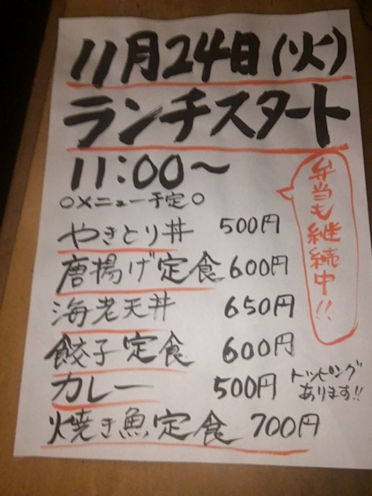 11月24日(火)
ランチスタート
11:00〜
○メニュー予定○
弁当も継続中!!
やきとり丼 500円
唐揚げ定食 600円
海老天丼 650円
餃子定食 600円
カレー 500円 トッピングあります!!
焼き魚定食 700円